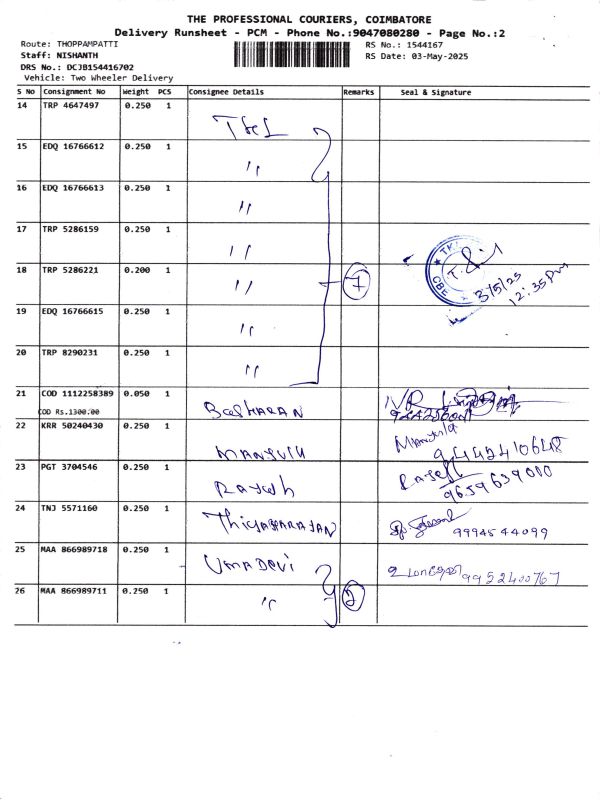 THE PROFESSIONAL COURIERS, COIMBATORE
Delivery Runsheet - PCM - Phone No.:9047080280 - Page No.:2
Route: THOPPAMPATTI
RS No.: 1544167
Staff: NISHANTH
RS Date: 03-May-2025
DRS No.: DCJB154416702
Vehicle: Two Wheeler Delivery
S No Consignment No Weight PCS Consignee Details Remarks Seal & Signature
14 TRP 4647497 0.250 1
15 EDQ 16766612 0.250 1 "
16 EDQ 16766613 0.250 1 "
17 TRP 5286159 0.250 1 "
18 TRP 5286221 0.200 1 " 7 3/5/25
12:35 pm
19 EDQ 16766615 0.250 1 "
20 TRP 8290231 0.250 1 "
21 COD 1112258389 0.050 1 BasKARAN
COD Rs.1300.00
22 KRR 50240430 0.250 1 MANJULA Manjula
9442410648
23 PGT 3704546 0.250 1 Rajesh Rajesh
9659639000
24 TNJ 5571160 0.250 1 ThiyagARAJAN 9994544099
25 MAA 866989718 0.250 1 UMADEVI 9952400767
26 MAA 866989711 0.250 1 " 2